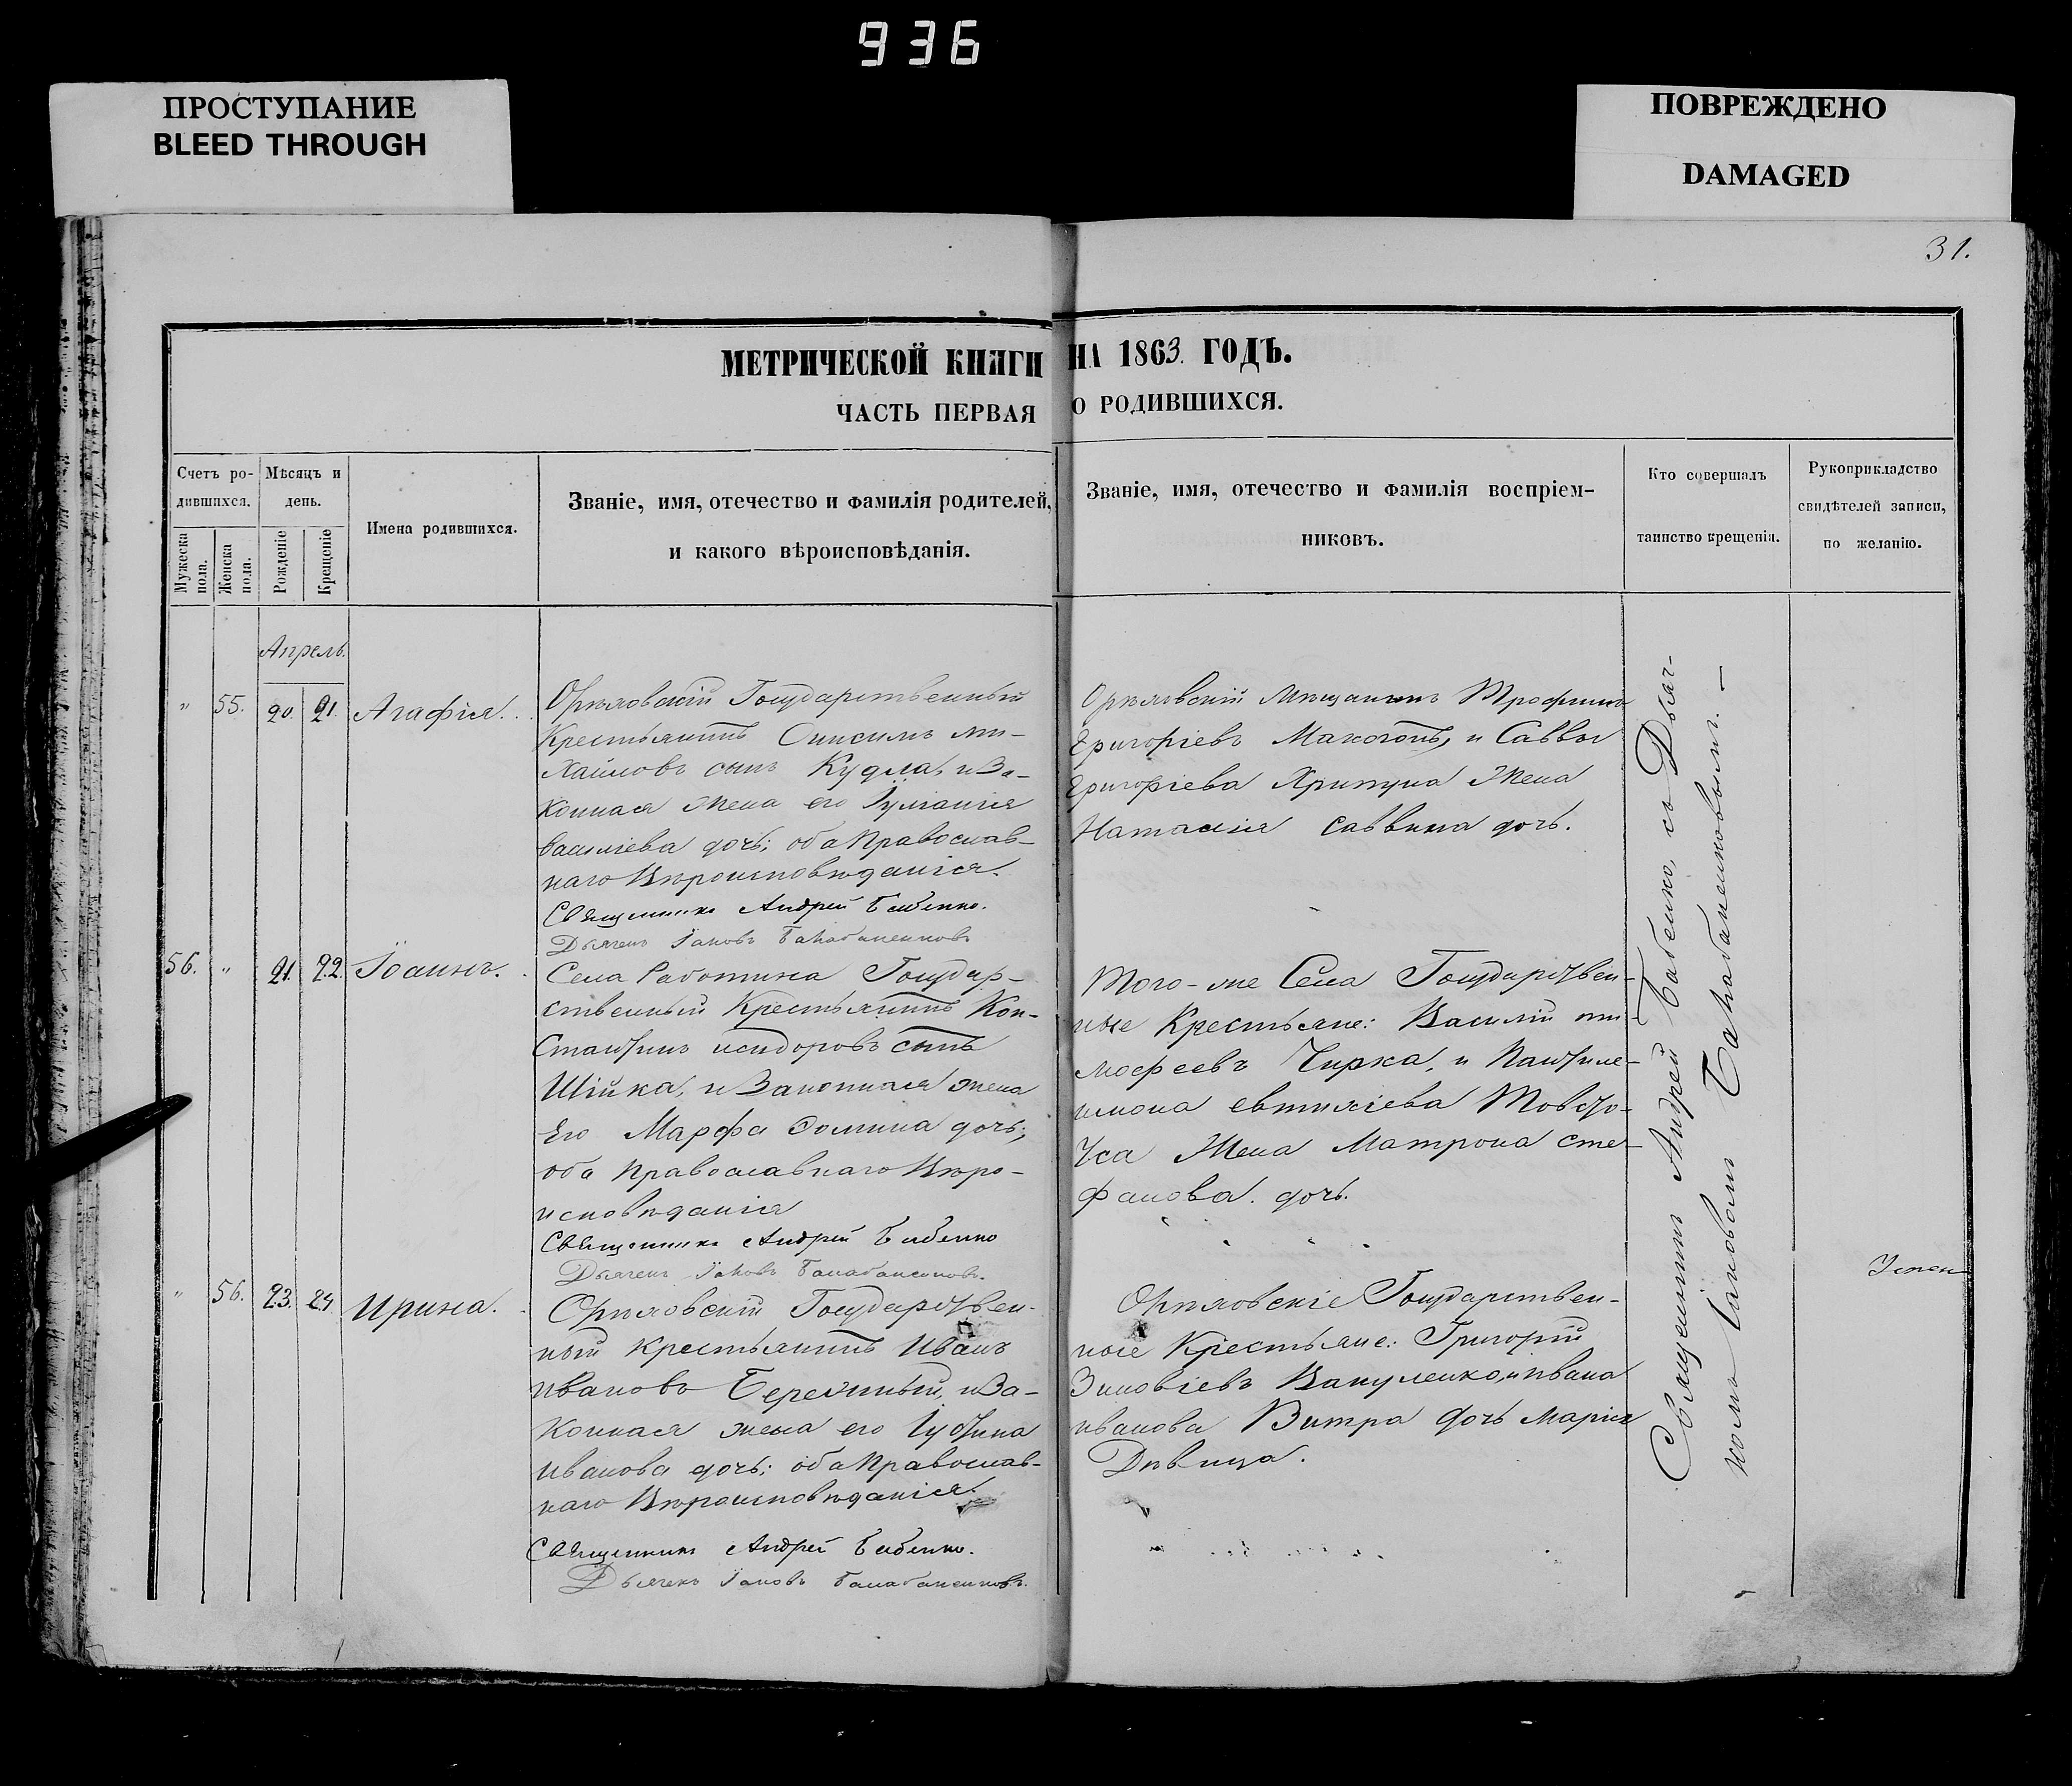 936
ПРОСТУПАНИЕ
BLEED THROUGH
ПОВРЕЖДЕНО
DAMAGED
31.
МЕТРИЧЕСКОЙ КНИГИ НА 1863 ГОДЪ.
ЧАСТЬ ПЕРВАЯ О РОДИВШИХСЯ.
Счетъ ро-
дившихся.
Мужеска
пола.
Женска
пола.
Мѣсяцъ и
день.
Рожденіе
Крещеніе
Имена родившихся.
Званіе, имя, отечество и фамилія родителей,
и какого вѣроисповѣданія.
Званіе, имя, отечество и фамилія воспріем-
никовъ.
Кто совершалъ
таинство крещенія.
Рукоприкладство
свидѣтелей записи,
по желанію.
Апрель.
" 55. 20. 21. Агафія.
Орѣховскій Государственный
Крестьянинъ Онисимъ ми-
хайловъ сынъ Кудла, и За-
конная жена его Іуліанія
василіева дочь; оба Православ-
наго Вѣроисповѣданія.
Священникъ Андрей Бабенко.
Дьячекъ Іаковъ Балабаненковъ
Орѣховскій Мѣщанинъ Трофимъ
Григоріевъ Макогонъ, и Саввы
Григоріева Хрипуна Жена
Наталія Саввина дочь.
56. " 21. 22. Іоаннъ.
Села Работина Государ-
ственный Крестьянинъ Кон-
стантинъ исидоровъ сынъ
Шійка, и Законная жена
Его Марфа Фомина дочь;
оба Православнаго Вѣро-
исповѣданія
Священникъ Андрей Бабенко
Дьячекъ Іаковъ Балабаненковъ.
Того-же Села Государствен-
ные Крестьяне: Василій ти-
мофеевъ Чирка, и Пантиле-
имона евтихіева Товсто-
Уса Жена Матрона сте-
фанова дочь.
" 56. 23. 24. Ирина.
Орѣховскій Государствен-
ный Крестьянинъ Иванъ
Ивановъ и За-
конная жена его Іустина
Иванова дочь; оба Православ-
наго Вѣроисповѣданія.
Священникъ Андрей Бабенко.
Дьячекъ Іаковъ Балабаненковъ.
Орѣховскіе Государствен-
ные Крестьяне: Григорій
Зиновіевъ Вакуленко, и ивана
иванова Витра дочь Марія
Дѣвица.
Священникъ Андрей Бабенко, съ Дьяч-
комъ Іаковомъ Балабаненковымъ. —